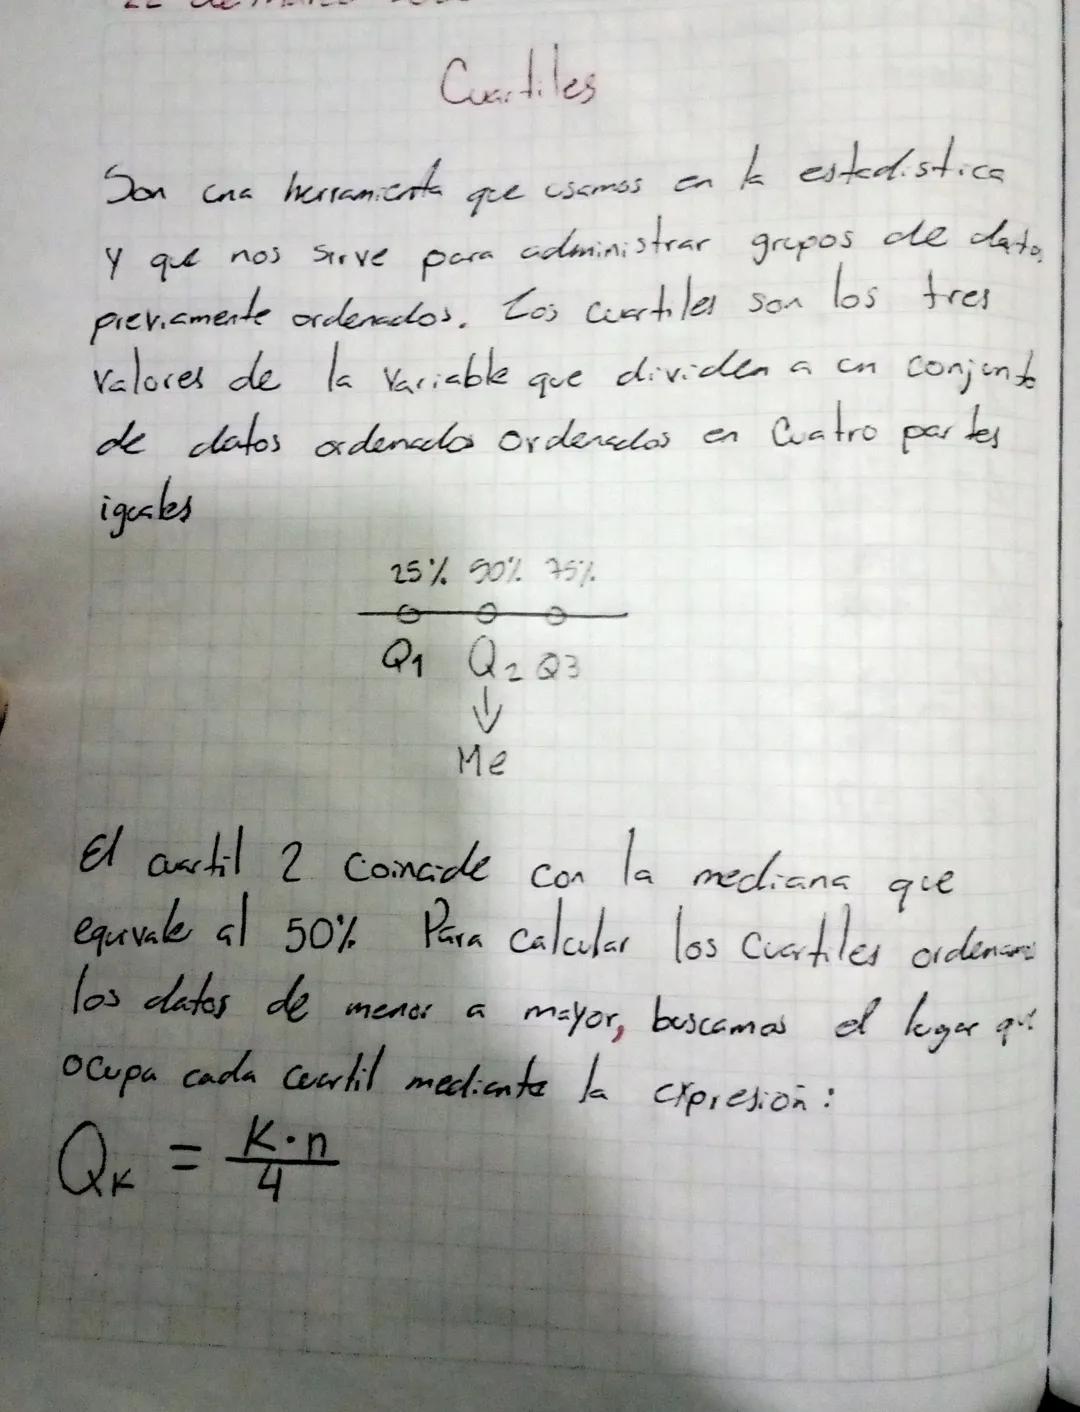 22 de marzo
Cuartiles
Son una herramienta que usamos en la estadistica
y que nos sirve para administrar grupos de datos
previamente ordenados. Los cuartiles son los tres
valores de la variable que dividen a un conjunto
de datos ordenados ordenados en cuatro partes
iguales
25% 50% 75%
Q1 Q2 Q3
↓
Me
El cuartil 2 coincide con la mediana que
equivale al 50% Para calcular los cuartiles ordenamos
los datos de menor a mayor, buscamos el lugar que
ocupa cada cuartil mediante la expresión:
QK = K·n
4